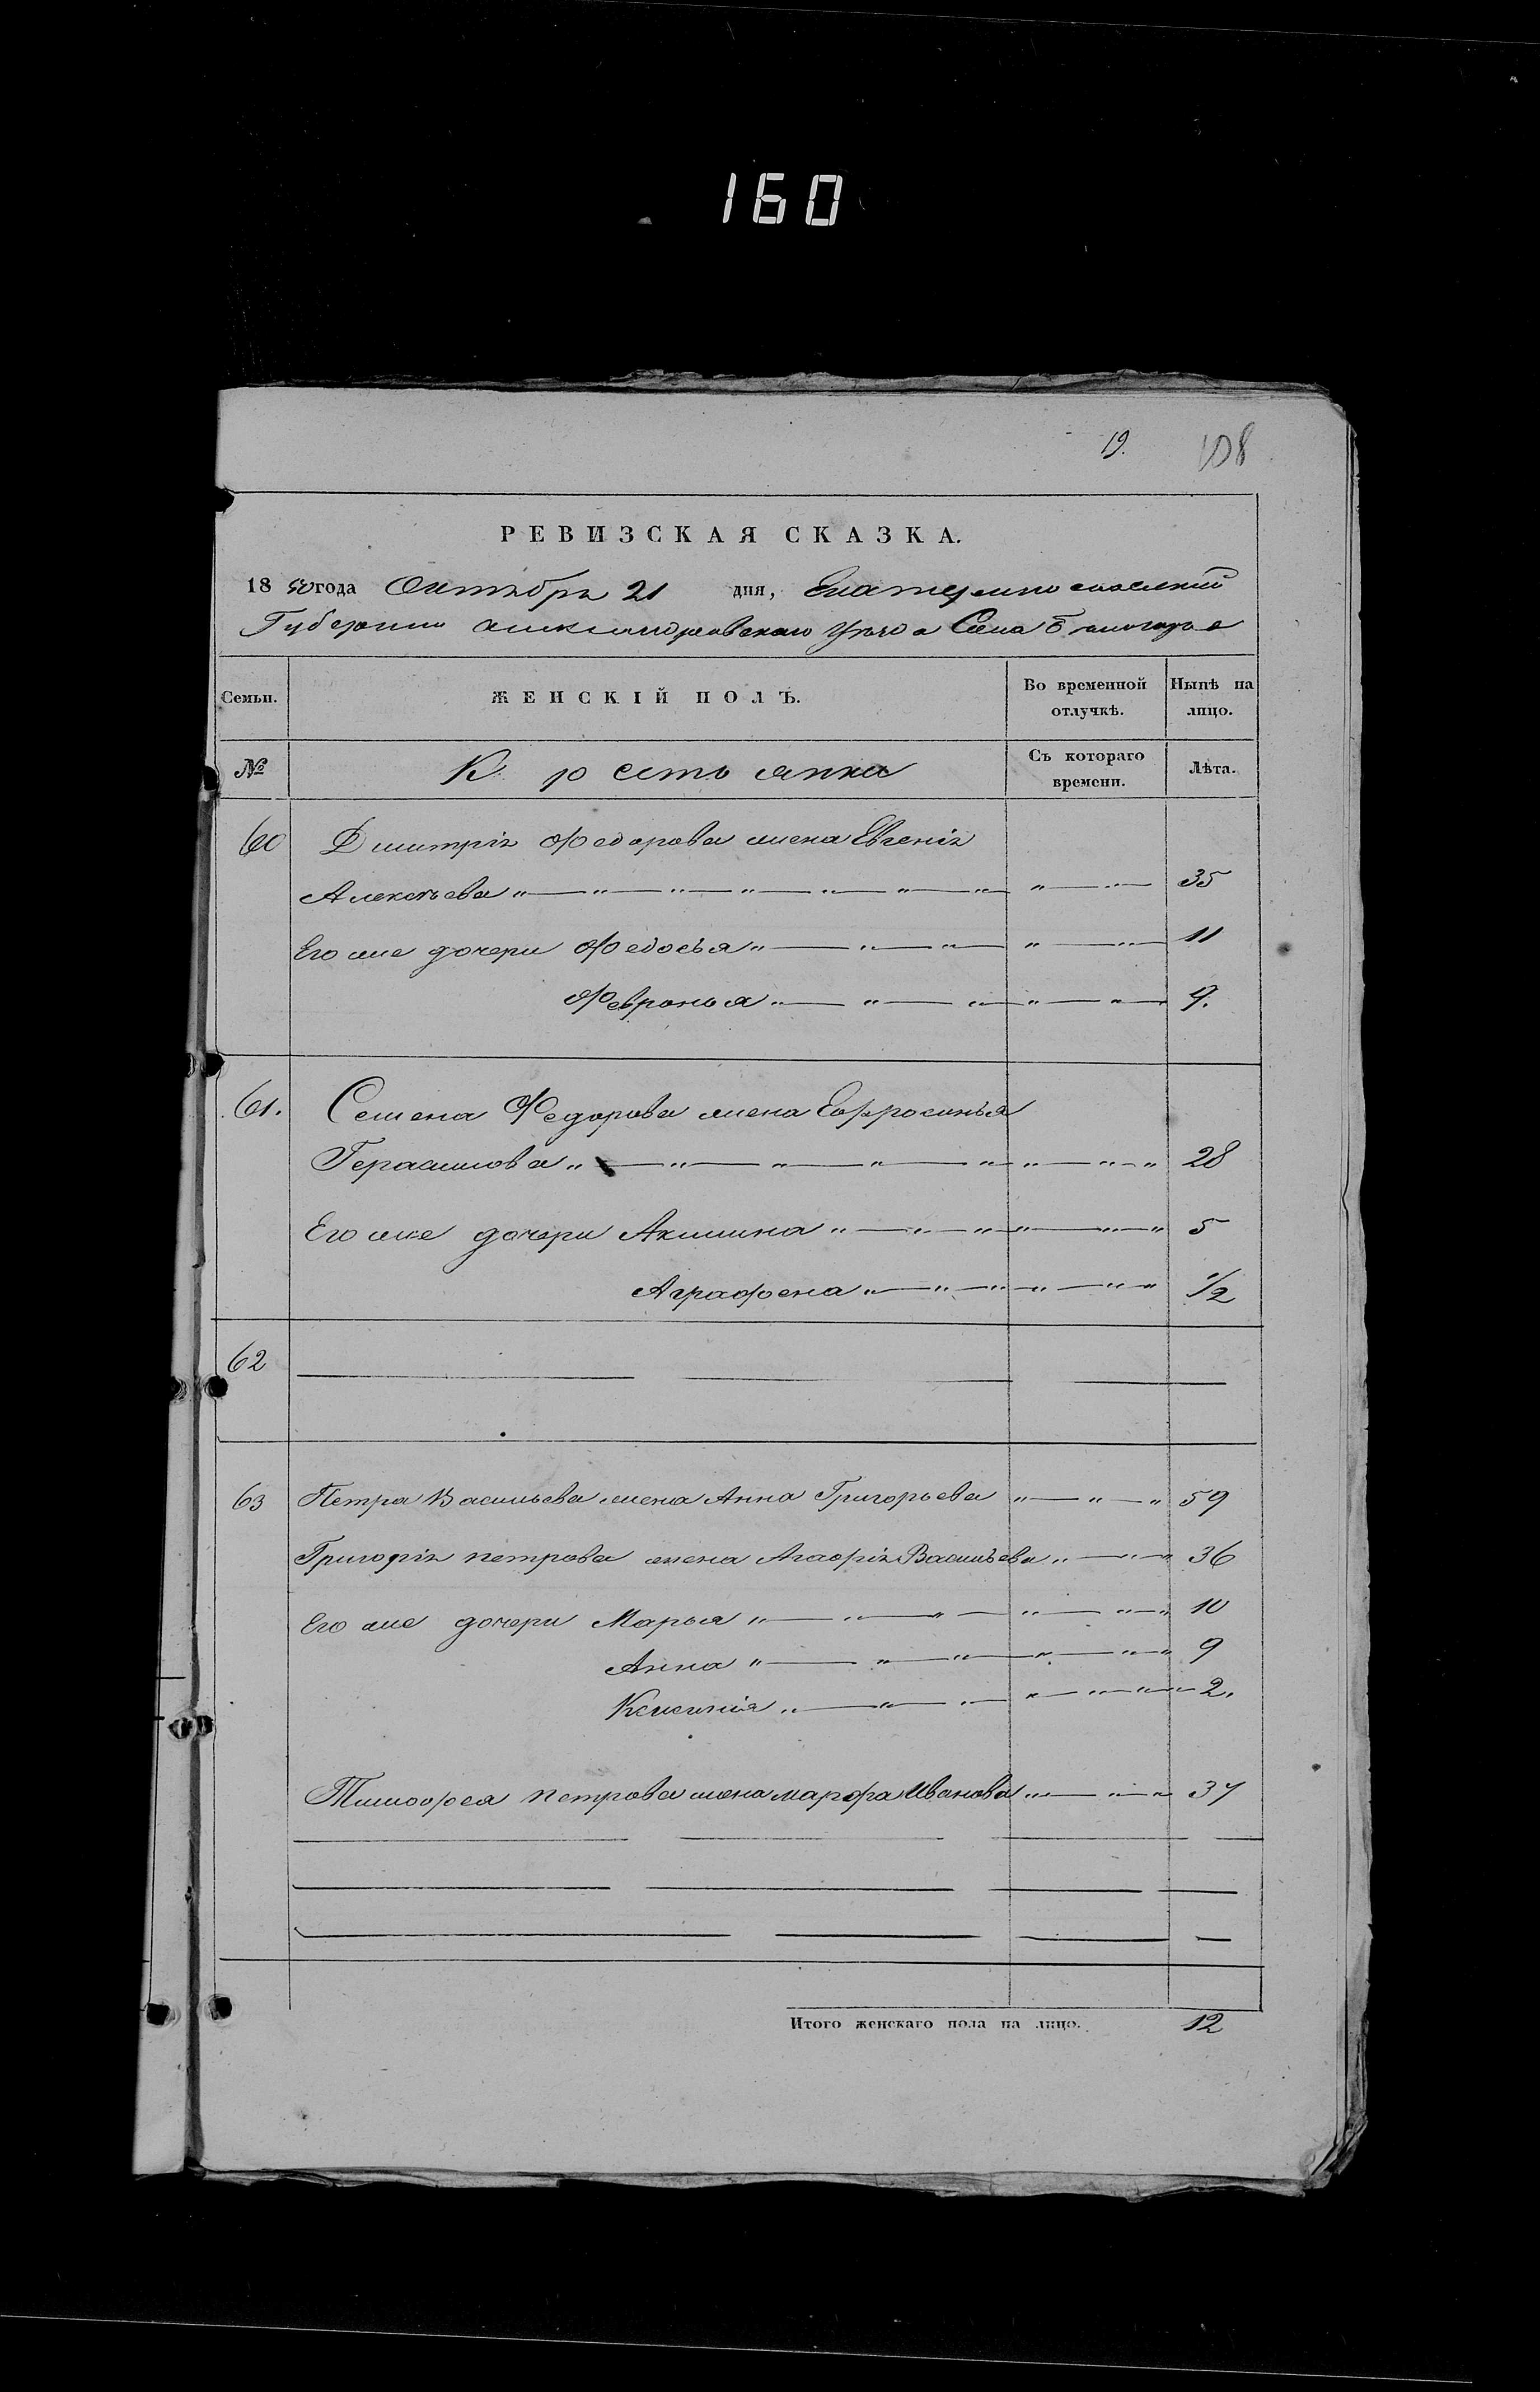 160
19.
108
РЕВИЗСКАЯ СКАЗКА.
1850 года Октября 21 дня, Екатеринославской
Губернии Александровскаго Уезда Села Белогорье
Семьи. ЖЕНСКІЙ ПОЛЪ. Во временной отлучкѣ. Нынѣ на лицо.
№ Крестьянка Съ котораго времени. Лѣта.
60 Дмитрія Федорова жена Евгенія
Алексѣева 35
Его же дочери Федосья 11
Февронья 9.
61. Семена Федорова жена Ефросинья
Герасимова 28
Его же дочери Акилина 5
Аграфена 1/2
62
63 Петра Васильева жена Анна Григорьева 59
Григорія петрова жена Агафія Васильева 36
Его же дочери Марья 10
Анна 9
Ксенія 2.
Тимофея петрова жена марфа Иванова 37
Итого женскаго пола на лицо. 12